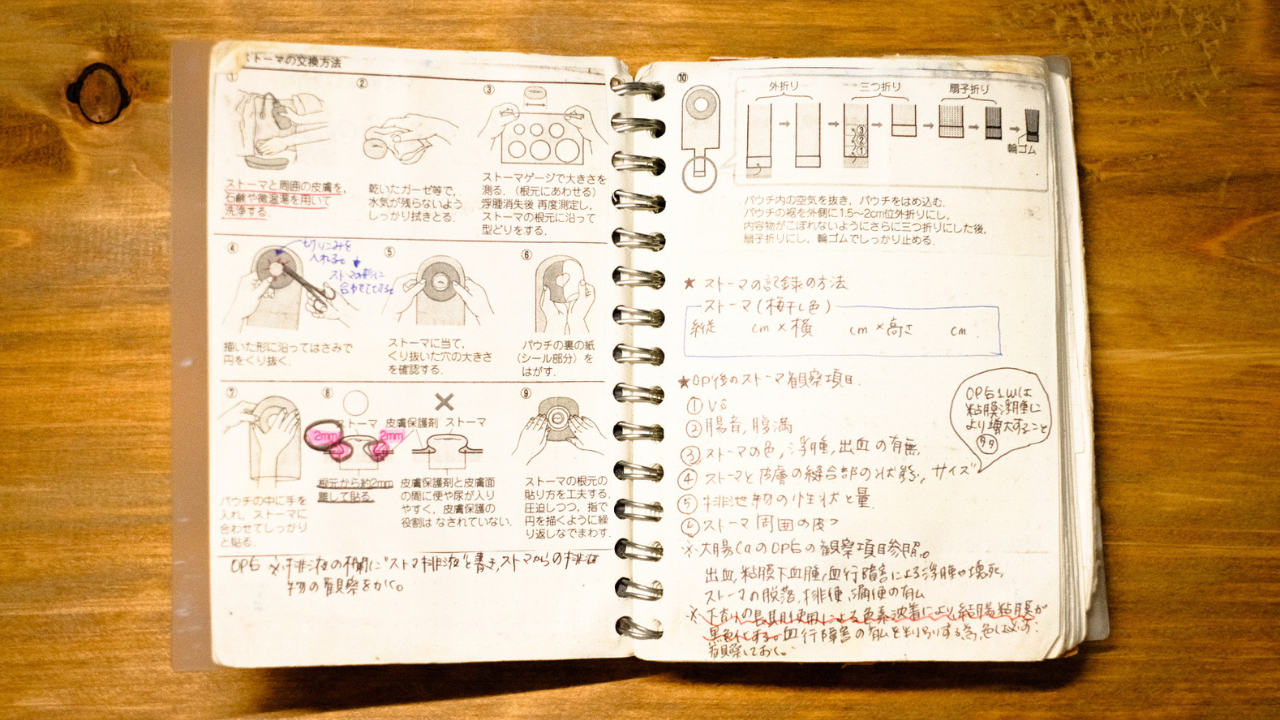 ストーマの交換方法
①
ストーマと周囲の皮膚を、
石鹸や微温湯を用いて
洗浄する.
②
乾いたガーゼ等で、
水気が残らないよう
しっかり拭きとる.
③
ストーマゲージで大きさを
測る.（根元にあわせる）
浮腫消失後 再度測定し,
ストーマの根元に沿って
型どりをする.
④
切りこみを
入れると
ストマの形に
描いた形に沿ってはさみで
円をくり抜く.
⑤
ストーマに当て,
くり抜いた穴の大きさ
を確認する.
⑥
パウチの裏の紙
（シール部分）を
はがす.
⑦
パウチの中に手を
入れ, ストーマに
合わせてしっかり
と貼る.
⑧
ストーマ 皮膚保護剤 ストーマ
2mm 2mm
根元から約2mm
離して貼る.
皮膚保護剤と皮膚面
の間に便や尿が入り
やすく, 皮膚保護の
役割は なされていない.
⑨
ストーマの根元の
貼り方を工夫する.
圧迫しつつ, 指で
円を描くように繰
り返しなでまわす.
OPE ※排液の欄に"ストマ排液"と書き,ストマからの排泄
物の観察をかく。
⑩
外折り 三つ折り 扇子折り
③
②
①
輪ゴム
パウチ内の空気を抜き, パウチをはめ込む.
パウチの裾を外側に1.5〜2cm位外折りにし,
内容物がこぼれないようにさらに三つ折りにした後,
扇子折りにし, 輪ゴムでしっかり止める.
★ ストーマの記録の方法
ストーマ(梅干し色)
縦 cm×横 cm×高さ cm
★OP後のストーマ観察項目.
①VS
②腸音,腹満
③ストーマの色,浮腫,出血の有無.
④ストーマと皮膚の縫合部の状態, サイズ
⑤排泄物の性状と量.
⑥ストーマ周囲の皮フ
OPE1Wは
粘膜浮腫に
より増大すること
あり
※大腸CaのOPEの観察項目参照。
出血,粘膜下血腫,血行障害による浮腫や壊死,
ストーマの脱落,排便,漏便の有ム
※下剤の長期使用による色素沈着により結腸粘膜が
黒色化する。血行障害の有ムを判別する為,色は必ず
観察しておく。